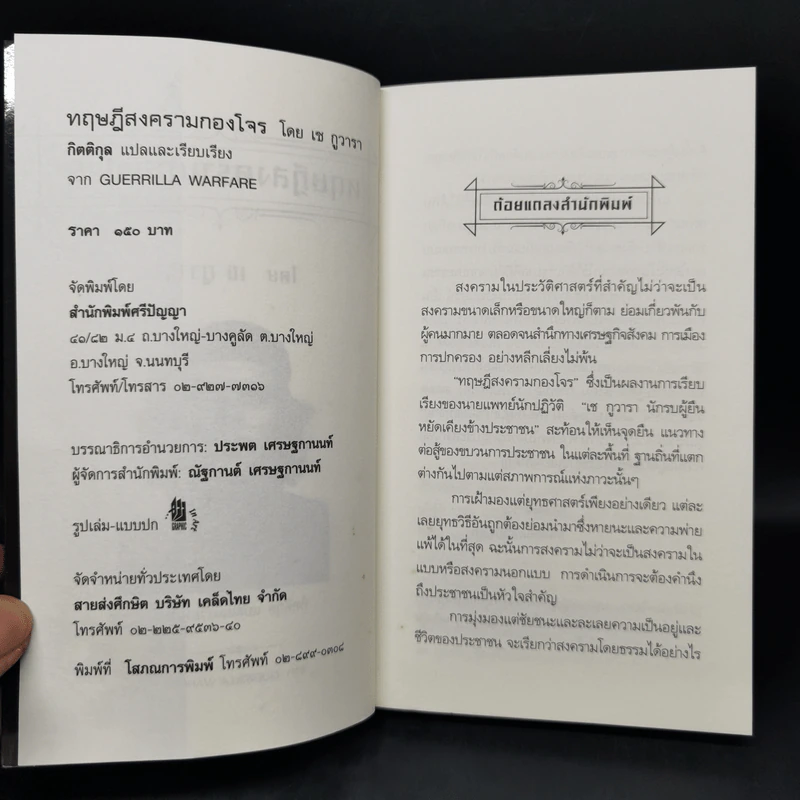 ทฤษฎีสงครามกองโจร โดย เช กูวารา
กิตติกุล แปลและเรียบเรียง
จาก GUERRILLA WARFARE
ราคา ๑๕๐ บาท
จัดพิมพ์โดย
สำนักพิมพ์ศรีปัญญา
๔๑/๘๒ ม.๔ ถ.บางใหญ่-บางคูลัด ต.บางใหญ่
อ.บางใหญ่ จ.นนทบุรี
โทรศัพท์/โทรสาร ๐๒-๙๒๗-๗๓๑๖
บรรณาธิการอำนวยการ: ประพต เศรษฐกานนท์
ผู้จัดการสำนักพิมพ์: ณัฐกานต์ เศรษฐกานนท์
รูปเล่ม-แบบปก
GRAPHIC
จัดจำหน่ายทั่วประเทศโดย
สายส่งศึกษิต บริษัท เคล็ดไทย จำกัด
โทรศัพท์ ๐๒-๒๒๕-๙๕๓๖-๔๐
พิมพ์ที่ โสภณการพิมพ์ โทรศัพท์ ๐๒-๘๙๙-๐๓๐๘
ถ้อยแถลงสำนักพิมพ์
สงครามในประวัติศาสตร์ที่สำคัญไม่ว่าจะเป็น
สงครามขนาดเล็กหรือขนาดใหญ่ก็ตาม ย่อมเกี่ยวพันกับ
ผู้คนมากมาย ตลอดจนสำนึกทางเศรษฐกิจสังคม การเมือง
การปกครอง อย่างหลีกเลี่ยงไม่พ้น
"ทฤษฎีสงครามกองโจร" ซึ่งเป็นผลงานการเรียบ
เรียงของนายแพทย์นักปฏิวัติ "เช กูวารา นักรบผู้ยืน
หยัดเคียงข้างประชาชน" สะท้อนให้เห็นจุดยืน แนวทาง
ต่อสู้ของขบวนการประชาชน ในแต่ละพื้นที่ ฐานถิ่นที่แตก
ต่างกันไปตามแต่สภาพการณ์แห่งภาวะนั้นๆ
การเฝ้ามองแต่ยุทธศาสตร์เพียงอย่างเดียว แต่ละ
เลยยุทธวิธีอันถูกต้องย่อมนำมาซึ่งหายนะและความพ่าย
แพ้ได้ในที่สุด ฉะนั้นการสงครามไม่ว่าจะเป็นสงครามใน
แบบหรือสงครามนอกแบบ การดำเนินการจะต้องคำนึง
ถึงประชาชนเป็นหัวใจสำคัญ
การมุ่งมองแต่ชัยชนะและละเลยความเป็นอยู่และ
ชีวิตของประชาชน จะเรียกว่าสงครามโดยธรรมได้อย่างไร